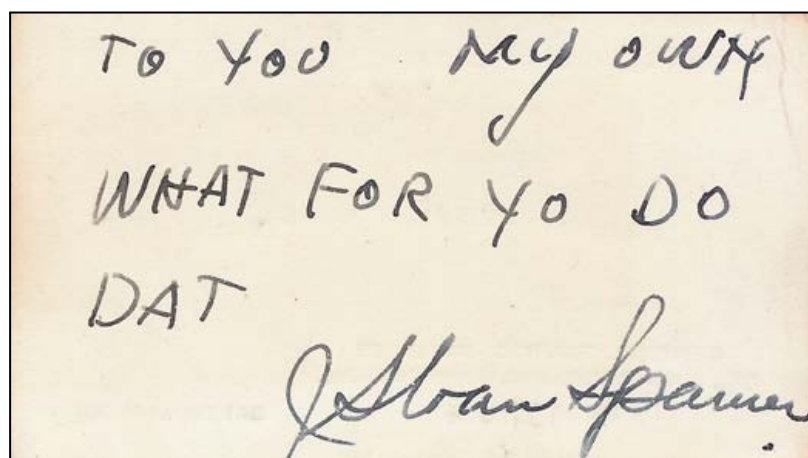 TO YOU MY OWN
WHAT FOR YO DO
DAT
J Sloan Spanner